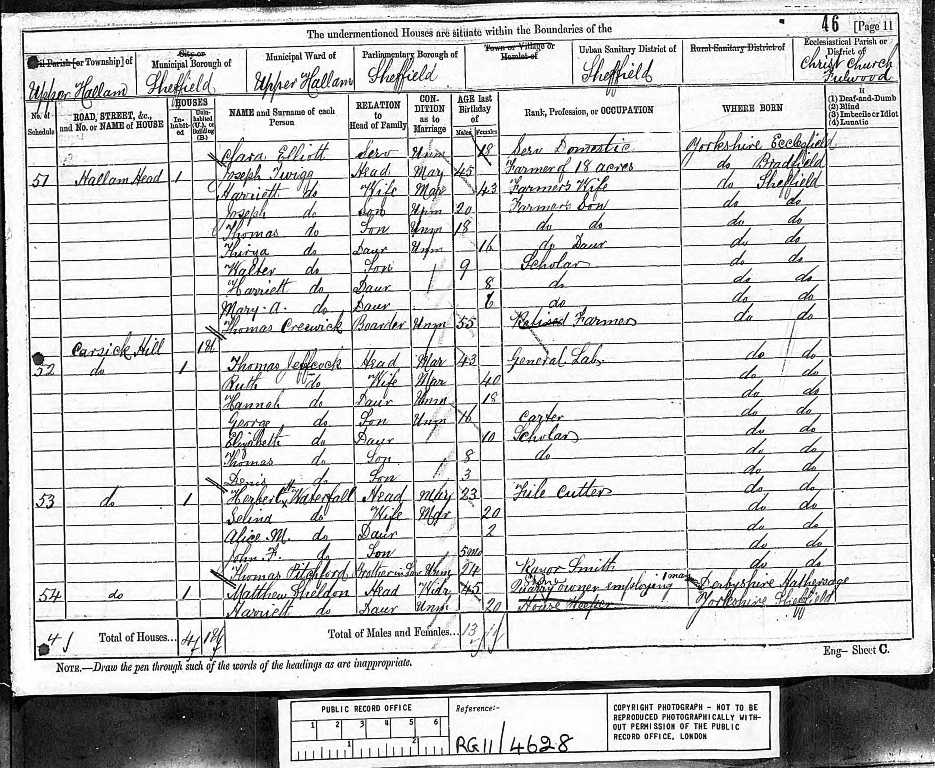 The undermentioned Houses are situate within the Boundaries of the
46 [Page 11
Civil Parish [or Township] of
City or Municipal Borough of
Municipal Ward of
Parliamentary Borough of
Town or Village or Hamlet of
Urban Sanitary District of
Rural Sanitary District of
Ecclesiastical Parish or District of
Upper Hallam
Sheffield
Upper Hallam
Sheffield
Sheffield
Christ Church Fulwood
No. of Schedule
ROAD, STREET, &c., and No. or NAME of HOUSE
HOUSES
Inhabited
Uninhabited (U.), or Building (B.)
NAME and Surname of each Person
RELATION to Head of Family
CONDITION as to Marriage
AGE last Birthday of
Males
Females
Rank, Profession, or OCCUPATION
WHERE BORN
If
(1) Deaf-and-Dumb
(2) Blind
(3) Imbecile or Idiot
(4) Lunatic
Clara Elliott Serv Unm 18 Serv Domestic Yorkshire Ecclesfield
51 Hallam Head 1 Joseph Twigg Head Mar 45 Farmer of 18 acres do Bradfield
Harriett do Wife Mar 43 Farmers Wife do Sheffield
Joseph do Son Unm 20 Farmers Son do do
Thomas do Son Unm 18 do do do do
Thirza do Daur Unm 16 do Daur do do
Walter do Son 9 Scholar do do
Harriett do Daur 8 do do do
Mary A. do Daur 6 do do do
Thomas Creswick Boarder Unm 55 Retired Farmer do do
Carsick Hill 1U
52 do 1 Thomas Jeffcock Head Mar 43 General Lab do do
Ruth do Wife Mar 40 do do
Hannah do Daur Unm 18 do do
George do Son Unm 16 Carter do do
Elizabeth do Daur 10 Scholar do do
Thomas do Son 8 do do do
Denis do Son 3 do do
53 do 1 Herbert Waterfall Head Mar 23 File Cutter do do
Selina do Wife Mar 20 do do
Alice M. do Daur 2 do do
John F. do Son 5mo do do
Thomas Pitchford Brother in Law Unm 24 Razor Smith do do
54 do 1 Matthew Sheldon Head Widr 45 Stone Quarry owner employing 1 man Derbyshire Hathersage
Harriett do Daur Unm 20 House Keeper Yorkshire Sheffield
4 Total of Houses... 4 1U Total of Males and Females... 13
NOTE.—Draw the pen through such of the words of the headings as are inappropriate.
Eng— Sheet C.
PUBLIC RECORD OFFICE
1 2 3 4 5 6
1 2
Reference:-
RG11/4628
COPYRIGHT PHOTOGRAPH - NOT TO BE REPRODUCED PHOTOGRAPHICALLY WITHOUT PERMISSION OF THE PUBLIC RECORD OFFICE, LONDON